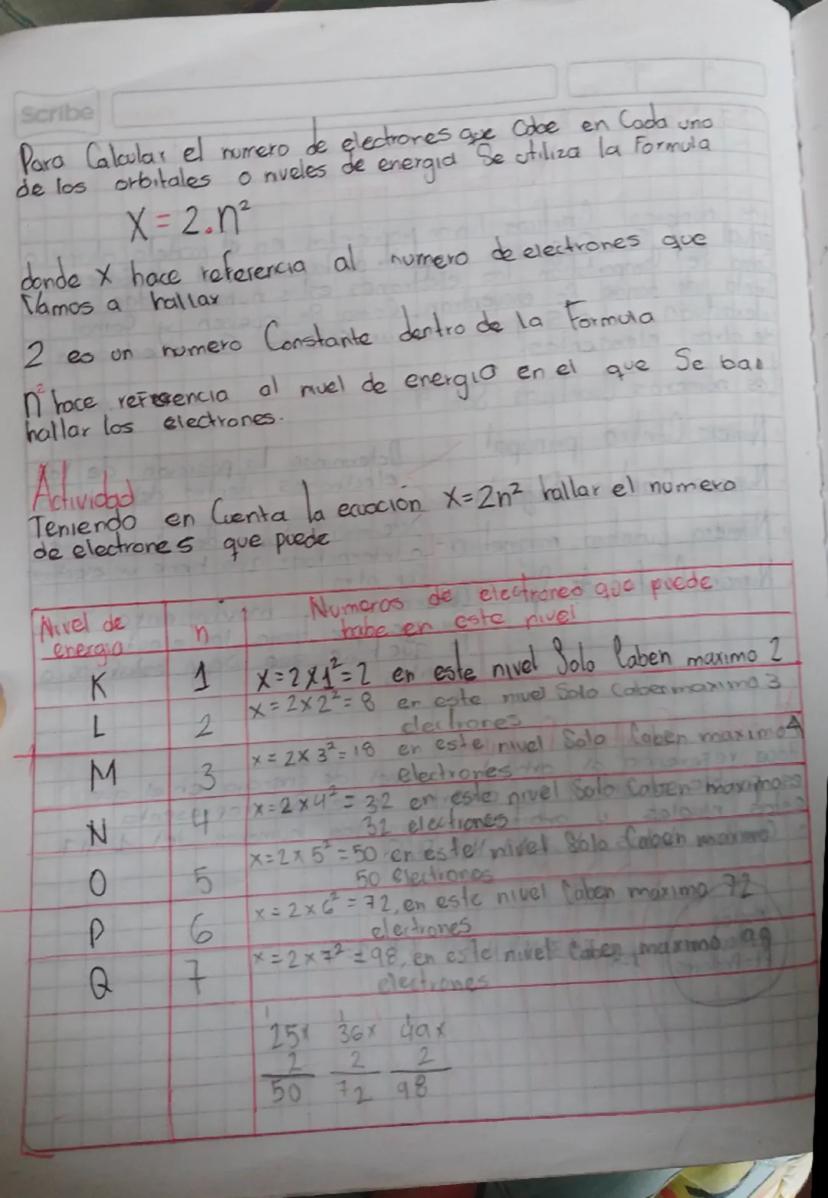 Scribe
Para Calcular el numero de electrones que Cabe en Cada uno
de los orbitales o niveles de energia Se utiliza la Formula
X = 2.n²
donde x hace referencia al numero de electrones que
Vamos a hallar
2 es un numero Constante dentro de la Formula
n² hace referencia al nivel de energia en el que Se ban
hallar los electrones.
Actividad
Teniendo en Cuenta la ecuacion X=2n² hallar el numero
de electrones que puede
Nivel de energia n Numeros de electrones que puede
habe en este nivel
K 1 x=2x1²=2 en este nivel Solo Caben maximo 2
L 2 x=2x2²=8 en este nivel Solo Caben maximo 3
electrones
M 3 x=2x3²=18 en este nivel Solo Caben maximo 4
electrones
N 4 x=2x4²=32 en este nivel Solo Caben maximo
32 electrones
O 5 x=2x5²=50 en este nivel Solo Caben maximo
50 electrones
P 6 x=2x6²=72, en este nivel Caben maximo 72
electrones
Q 7 x=2x7²=98, en este nivel Caben maximo 98
electrones
1 1 1
25x 36x 49x
2 2 2
50 72 98